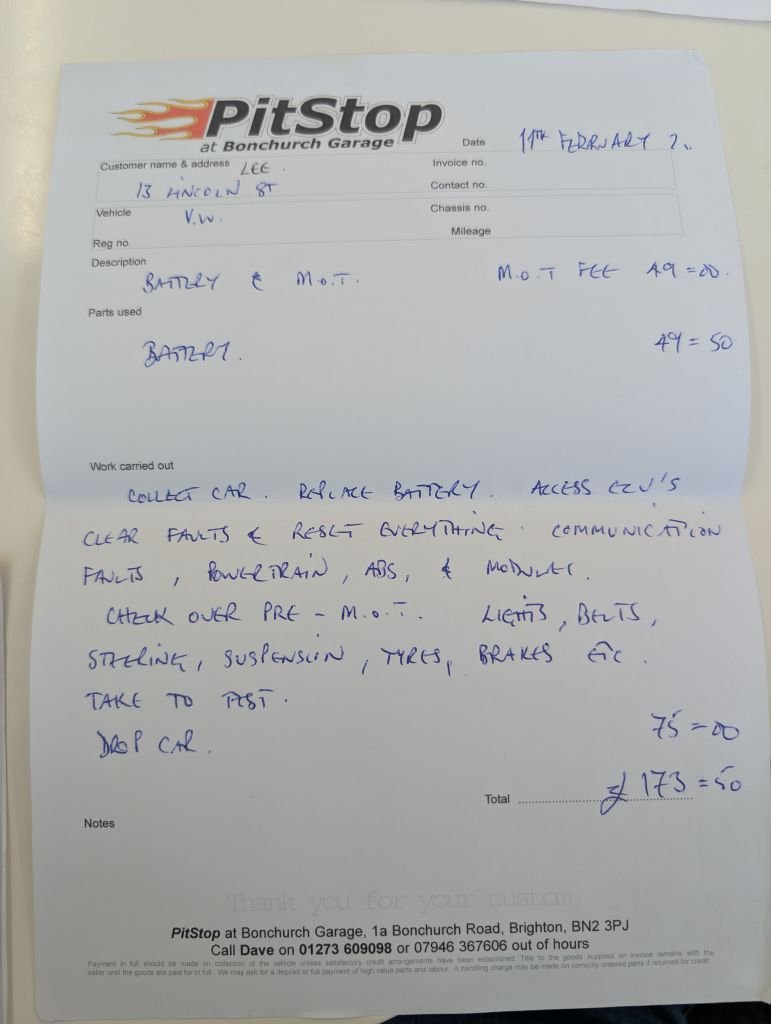 PitStop
at Bonchurch Garage
Date 11TH FEBRUARY 2..
Customer name & address LEE.
Invoice no.
13 LINCOLN ST
Contact no.
Vehicle V.W.
Chassis no.
Mileage
Reg no.
Description
BATTERY & M.O.T. M.O.T FEE 49=00.
Parts used
BATTERY. 49=50
Work carried out
COLLECT CAR. REPLACE BATTERY. ACCESS ECU'S
CLEAR FAULTS & RESET EVERYTHING. COMMUNICATION
FAULTS, POWERTRAIN, ABS, & MODULES.
CHECK OVER PRE - M.O.T. LIGHTS, BELTS,
STEERING, SUSPENSION, TYRES, BRAKES ETC.
TAKE TO TEST.
DROP CAR. 75=00
Total £173=50
Notes
Thank you for your custom
PitStop at Bonchurch Garage, 1a Bonchurch Road, Brighton, BN2 3PJ
Call Dave on 01273 609098 or 07946 367606 out of hours
Payment in full should be made on collection of the vehicle unless satisfactory credit arrangements have been established. Title to the goods supplied on invoice remains with the
seller until the goods are paid for in full. We may ask for a deposit or full payment of high value parts and labour. A handling charge may be made on correctly ordered parts if returned for credit.